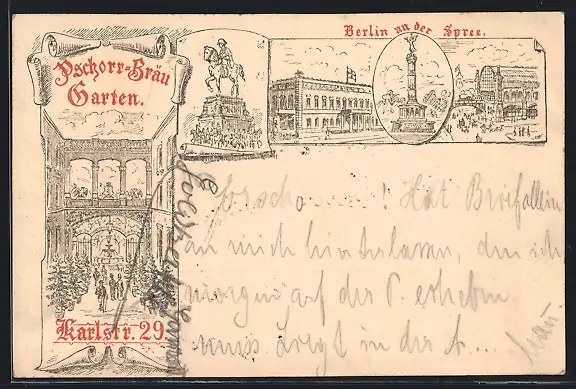 Berlin an der Spree.
Pschorr-Bräu
Garten.
Karlstr. 29.
! Hat Brief allein
an mich hinterlassen, den ich
morgen auf der P. erheben
muss. Liegt in der A...